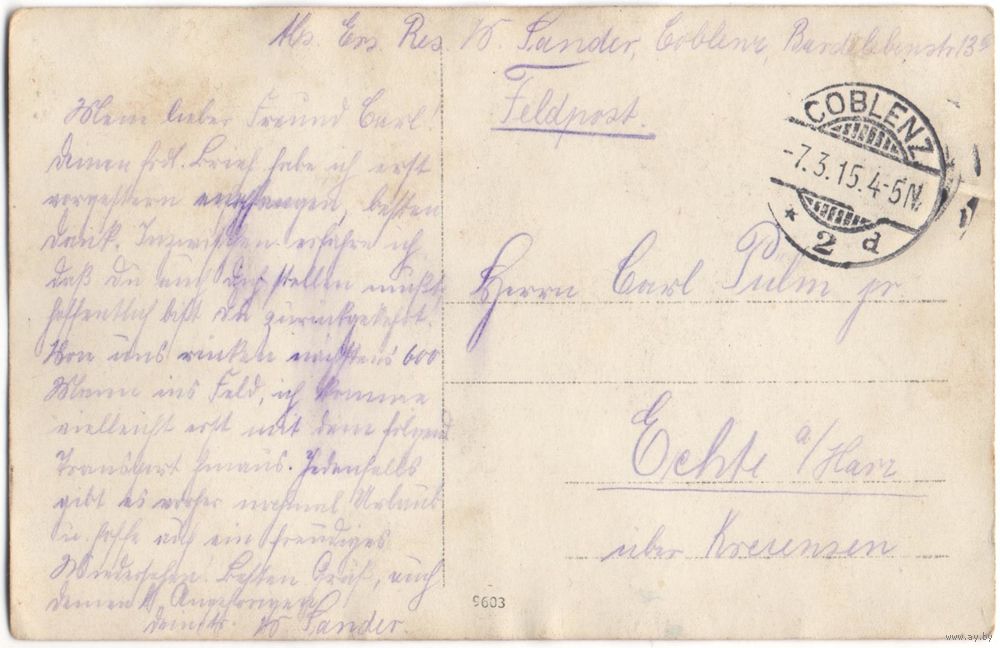 Abs. Ers. Res. W. Sander, Coblenz, Bardelebenstr. 13
Feldpost.
COBLENZ
-7.3.15.4-5N.
* 2 d
Mein lieber Freund Carl!
Deinen frdl. Brief habe ich erst
vorgestern empfangen, besten
Dank. Inzwischen erfahre ich
daß Du auch Dich stellen mußt,
hoffentlich bist Du zurückgekehrt.
Von uns rücken nächstens 600
Mann ins Feld, ich komme
vielleicht erst mit dem folgend
Transport hinaus. Jedenfalls
gibt es vorher nochmal Urlaub
u. hoffe auf ein freudiges
Wiedersehen. Besten Gruß, auch
Deinen Angehörigen
W Sander.
Herrn Carl Pülm jr
Echte a/Harz
über Kreiensen
9603
www.ay.by